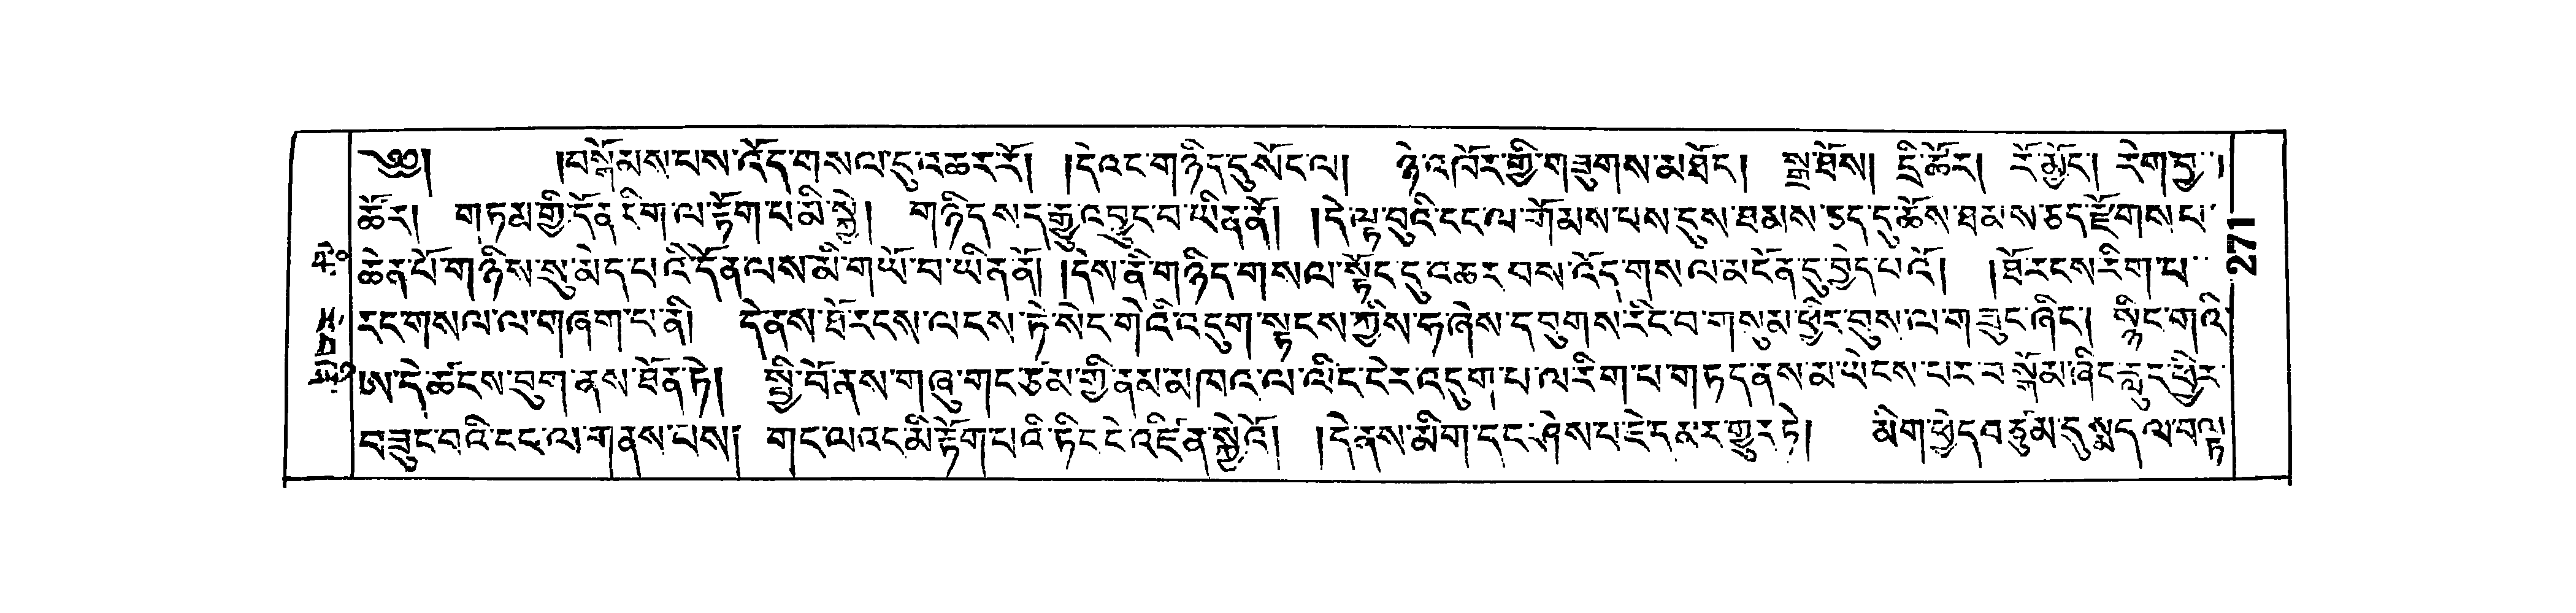 ༄༅། །བསྒོམས་པས་འོད་གསལ་དུ་འཆར་རོ། །དེ་འང་གཉིད་དུ་སོང་ལ། ཉེ་འཁོར་གྱི་གཟུགས་མ་ཐོང་། སྒྲ་ཐོས། དྲི་ཚོར། རོ་མྱོང་། རེག་བྱ་
ཚོར། གཏམ་གྱི་དོན་རིག་ལ་རྟོག་པ་མི་སྐྱེ། གཉིད་ས་ད་རྒྱུ་འབྱུང་བ་ཡིན་ནོ། །དེ་ལྟ་བུའི་ངང་ལ་གོམས་པས་དུས་ཐམས་ཅད་དུ་ཆོས་ཐམས་ཅད་རྫོགས་པ་
ཆེན་པོ་གཉིས་སུ་མེད་པའི་དོན་ལས་མི་གཡོ་བ་ཡིན་ནོ། །དེས་ནི་གཉིད་གསལ་སྟོང་དུ་འཆར་བས་འོད་གསལ་མངོན་དུ་བྱེད་པའོ། །ཐོ་རངས་རིག་པ་
རང་གསལ་ལ་གཞག་པ་ནི། དེ་ནས་ཐོ་རངས་ལངས་ཏེ་སེང་གེའི་འདུག་སྟངས་ཀྱིས་ཧ་ཞེས་དབུགས་རིང་བ་གསུམ་ཕྱིར་བུས་ལ་གཟུང་ཞིང་། སྙིང་གའི་
ཨ་དེ་ཚངས་བུག་ནས་ཐོན་ཏེ། སྤྱི་བོ་ནས་གཞུ་གང་ཙམ་གྱི་ནམ་མཁའ་ལ་ལིང་ངེར་འདུག་པ་ལ་རིག་པ་གཏད་ནས་མ་ཡེངས་པར་བསྒོམ་ཞིང་རླུང་ཕྱིར་
བཟུང་བའི་ངང་ལ་གནས་པས། གང་ལའང་མི་རྟོག་པའི་ཏིང་ངེ་འཛིན་སྐྱེའོ། །དེ་ནས་མིག་དང་ཤེས་པ་ཇེ་དམར་གྱུར་ཏེ། མིག་ཕྱེད་བཙུམ་དུ་སྨད་ལ་བལྟ་
172